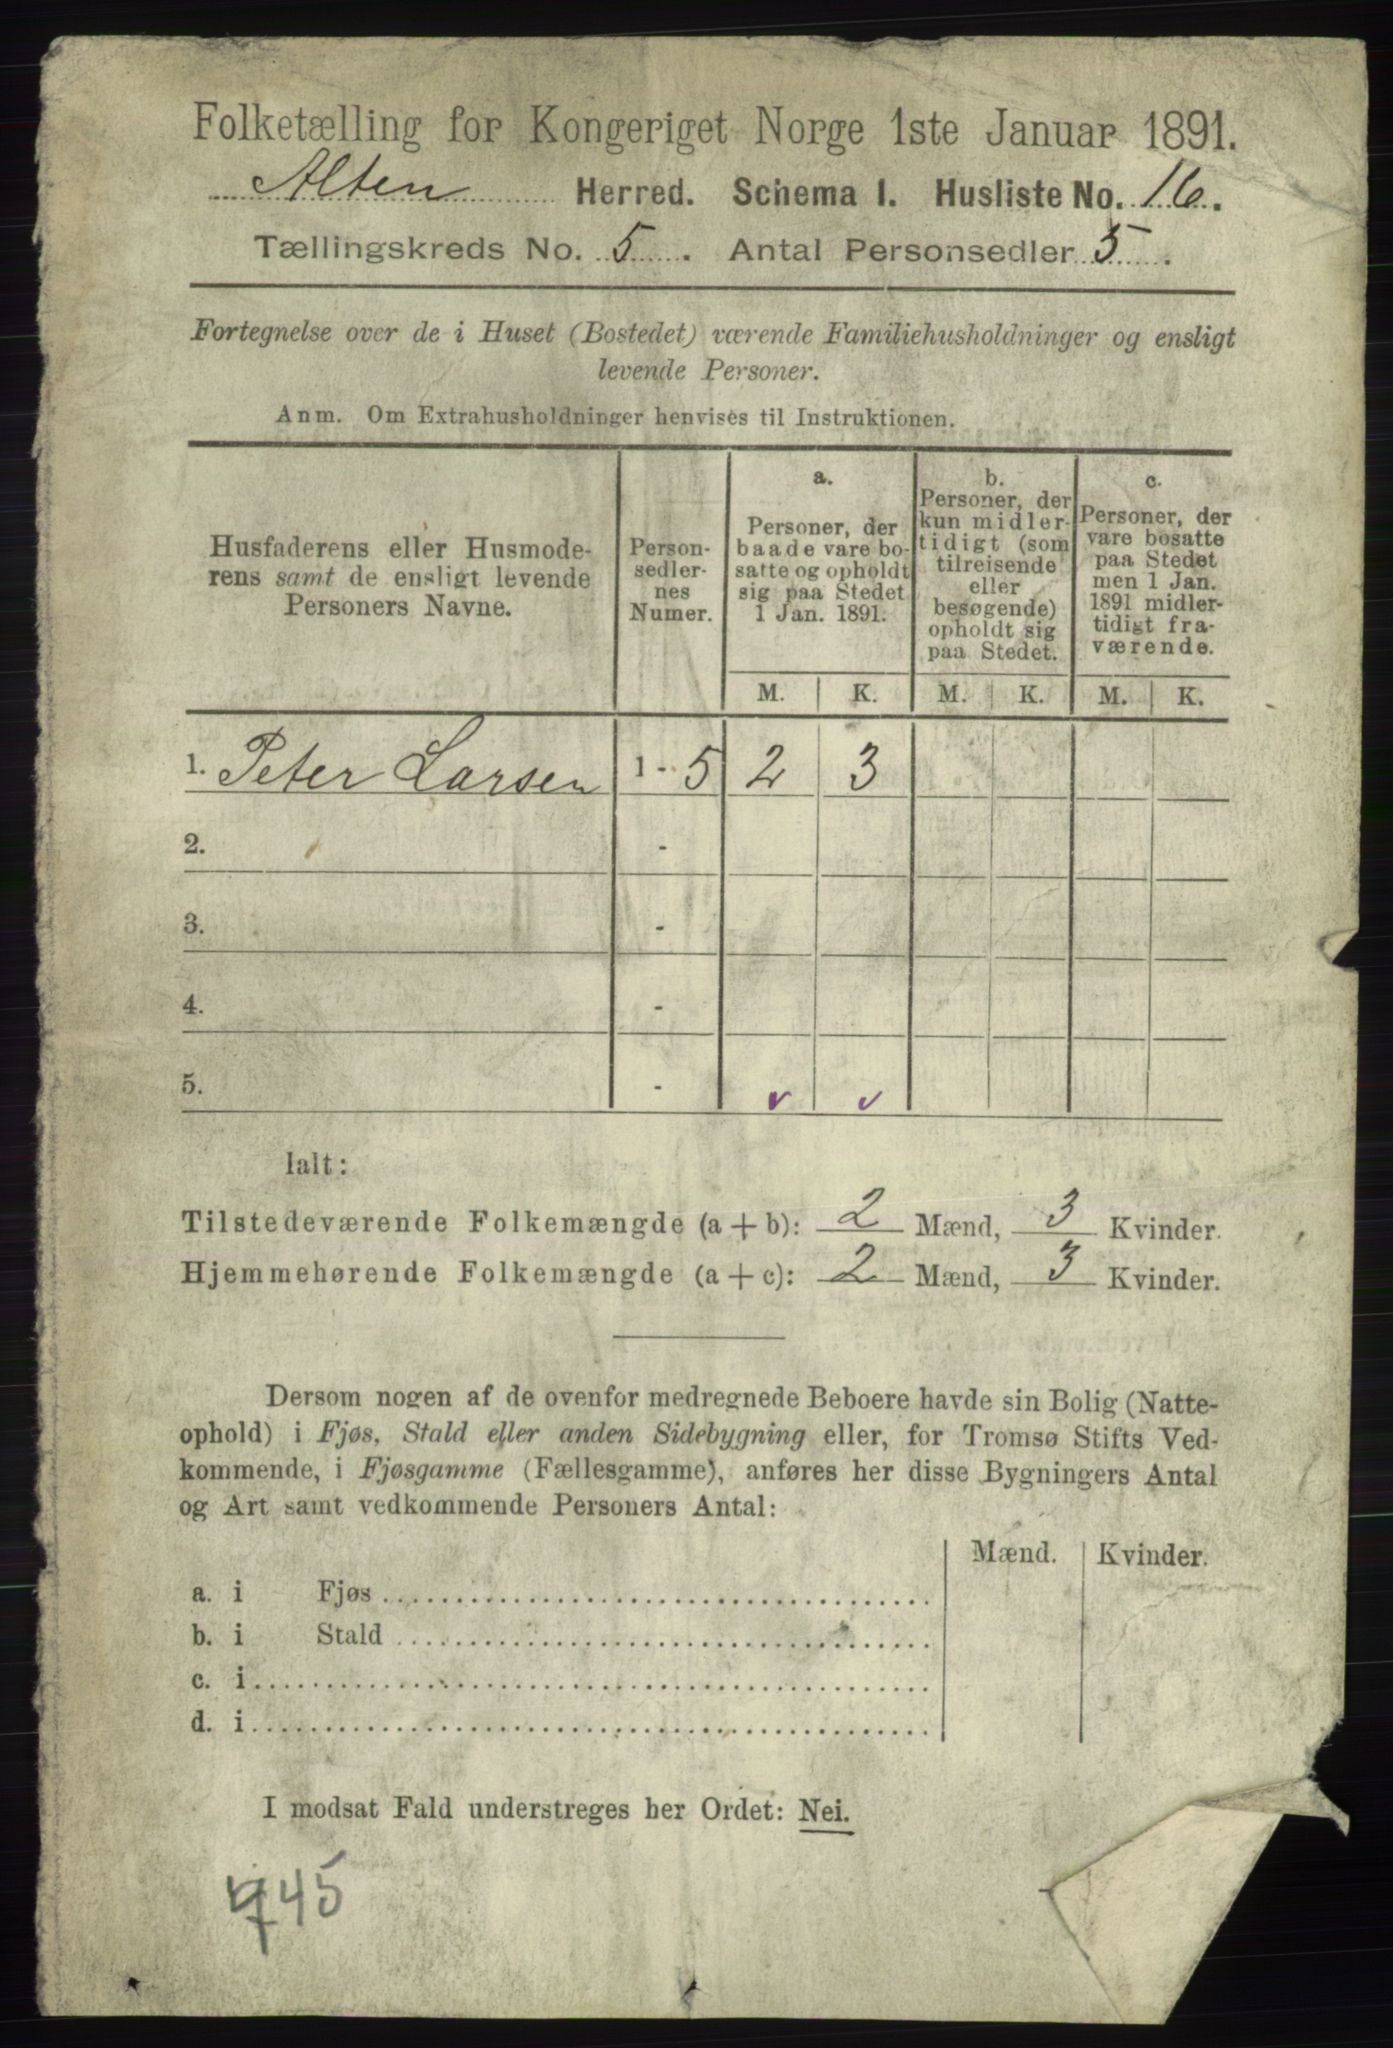 Folketælling for Kongeriget Norge 1ste Januar 1891.
Alten Herred. Schema I. Husliste No. 16.
Tællingskreds No. 5. Antal Personsedler 5.
Fortegnelse over de i Huset (Bostedet) værende Familiehusholdninger og ensligt
levende Personer.
Anm. Om Extrahusholdninger henvises til Instruktionen.
Husfaderens eller Husmode-
rens samt de ensligt levende
Personers Navne.
Person-
sedler-
nes
Numer.
a.
Personer, der
baade vare bo-
satte og opholdt
sig paa Stedet
1 Jan. 1891.
b.
Personer, der
kun midler-
tidigt (som
tilreisende
eller
besøgende)
opholdt sig
paa Stedet.
c.
Personer, der
vare bosatte
paa Stedet
men 1 Jan.
1891 midler-
tidigt fra-
værende.
M. K. M. K. M. K.
1. Peter Larsen 1 - 5 2 3
2. -
3. -
4. -
5. - v v
Ialt:
Tilstedeværende Folkemængde (a + b): 2 Mænd, 3 Kvinder.
Hjemmehørende Folkemængde (a + c): 2 Mænd, 3 Kvinder.
Dersom nogen af de ovenfor medregnede Beboere havde sin Bolig (Natte-
ophold) i Fjøs, Stald eller anden Sidebygning eller, for Tromsø Stifts Ved-
kommende, i Fjøsgamme (Fællesgamme), anføres her disse Bygningers Antal
og Art samt vedkommende Personers Antal:
Mænd. Kvinder.
a. i Fjøs
b. i Stald
c. i
d. i
I modsat Fald understreges her Ordet: Nei.
45